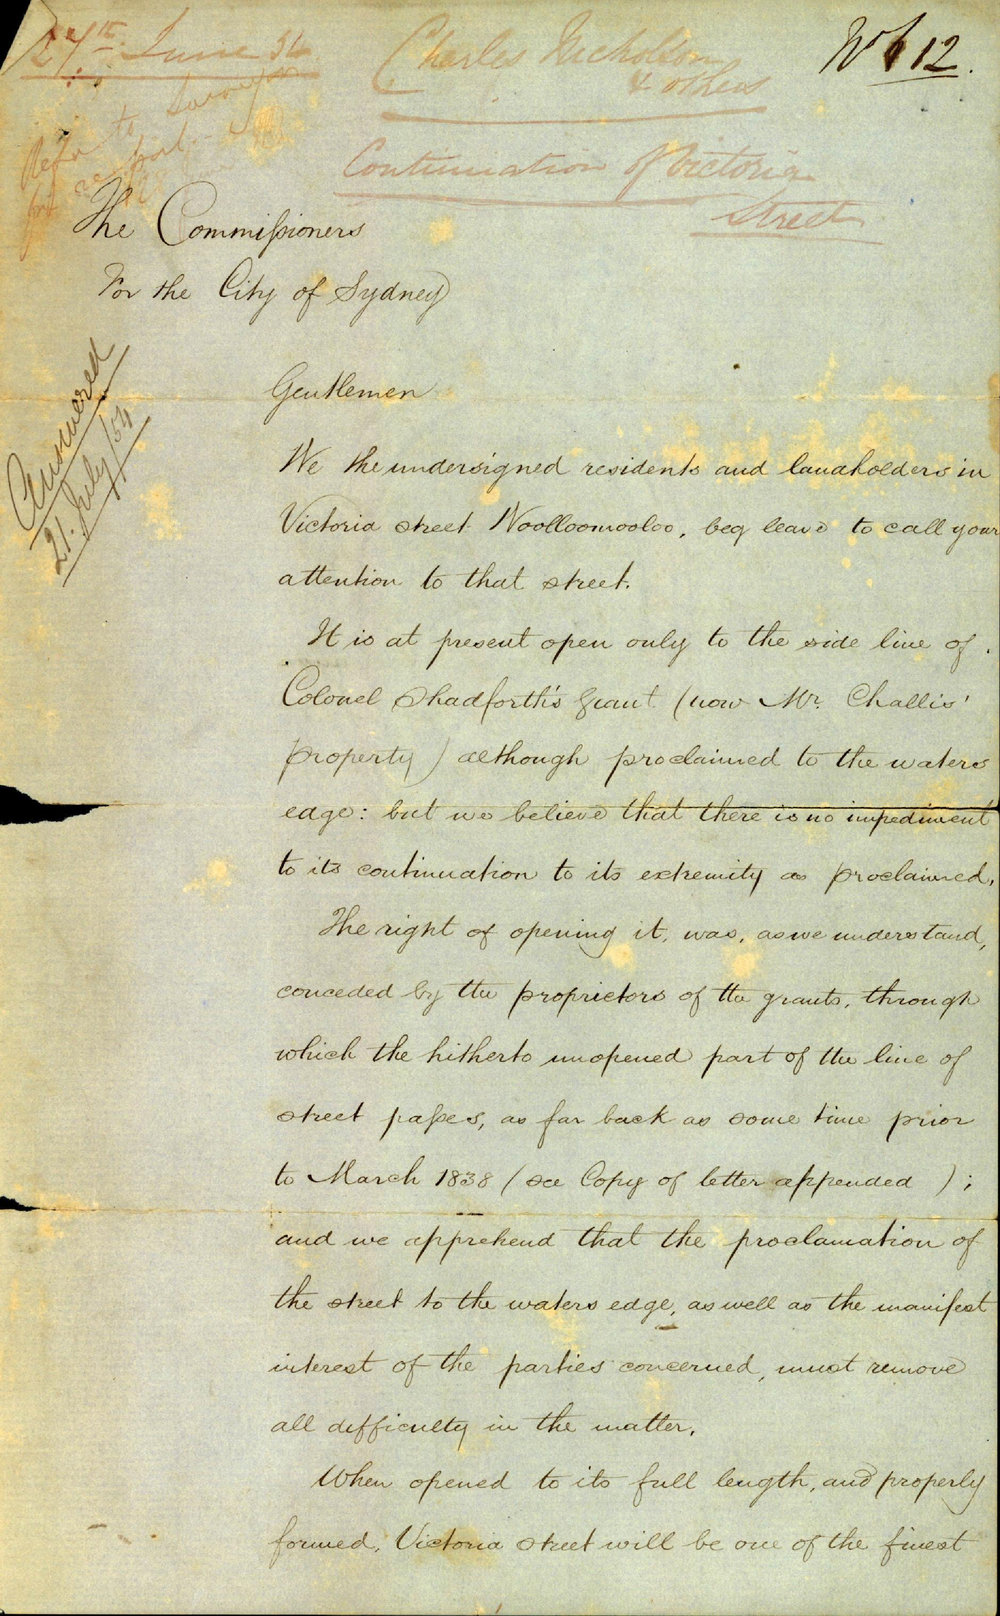 27th June 54
Charles Nicholson
& others
No 12.
Refer to Surveyor
for report
Continuation of Victoria
Street
The Commissioners
For the City of Sydney
Answered
21. July /54
Gentlemen
We the undersigned residents and landholders in
Victoria street Woolloomooloo, beg leave to call your
attention to that street.
It is at present open only to the side line of
Colonel Shadforth's grant (now Mr. Challis'
property) although proclaimed to the waters
edge: but we believe that there is no impediment
to its continuation to its extremity as proclaimed.
The right of opening it, was, as we understand,
conceded by the proprietors of the grants, through
which the hitherto unopened part of the line of
street passes, as far back as some time prior
to March 1838 (see Copy of letter appended);
and we apprehend that the proclamation of
the street to the waters edge, as well as the manifest
interest of the parties concerned, must remove
all difficulty in the matter.
When opened to its full length, and properly
formed, Victoria street will be one of the finest